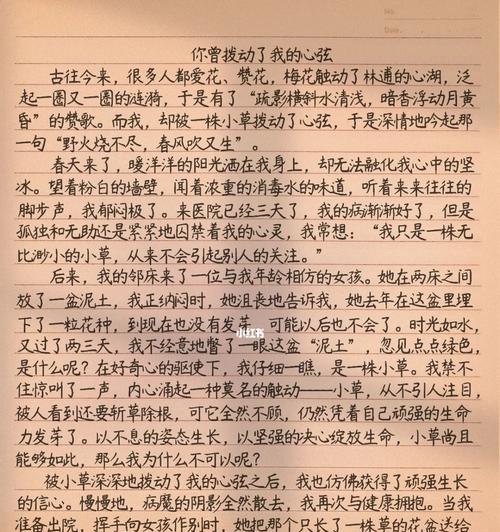 No.
Date.
你曾拨动了我的心弦
古往今来，很多人都爱花、赞花，梅花触动了林逋的心湖，泛
起一圈又一圈的涟漪，于是有了“疏影横斜水清浅，暗香浮动月黄
昏”的赞歌。而我，却被一株小草拨动了心弦，于是深情地吟起那
一句“野火烧不尽，春风吹又生”。
春天来了，暖洋洋的阳光洒在我身上，却无法融化我心中的坚
冰。望着粉白的墙壁，闻着浓重的消毒水的味道，听着来来往往的
脚步声，我郁闷极了。来医院已经三天了，我的病渐渐好了，但是
孤独和无助还是紧紧地囚禁着我的心灵，我常想：“我只是一株无
比渺小的小草，从来不会引起别人的关注。”
后来，我的邻床来了一位与我年龄相仿的女孩。她在两床之间
放了一盆泥土，我正纳闷时，她沮丧地告诉我，她去年在这盆里埋
下了一粒花种，到现在也没有发芽，可能以后也不会了。时光如水，
又过了两三天，我不经意地瞥了一眼这盆“泥土”，忽见点点绿色，
是什么呢？在好奇心的驱使下，我仔细一瞧，是一株小草。我禁不
住惊叫了一声，内心涌起一种莫名的触动——小草，从不引人注目，
被人看到还要斩草除根，可它全然不顾，仍然凭着自己顽强的生命
力发芽了。以不息的姿态生长，以坚强的决心绽放生命，小草尚且
能够如此，那么我为什么不可以呢？
被小草深深地拨动了我的心弦之后，我也仿佛获得了顽强生长
的信心。慢慢地，病魔的阴影全然散去，我再次与健康拥抱。当我
准备出院，挥手向女孩作别时，她把那个只长了一株草的花盆送给
小红书